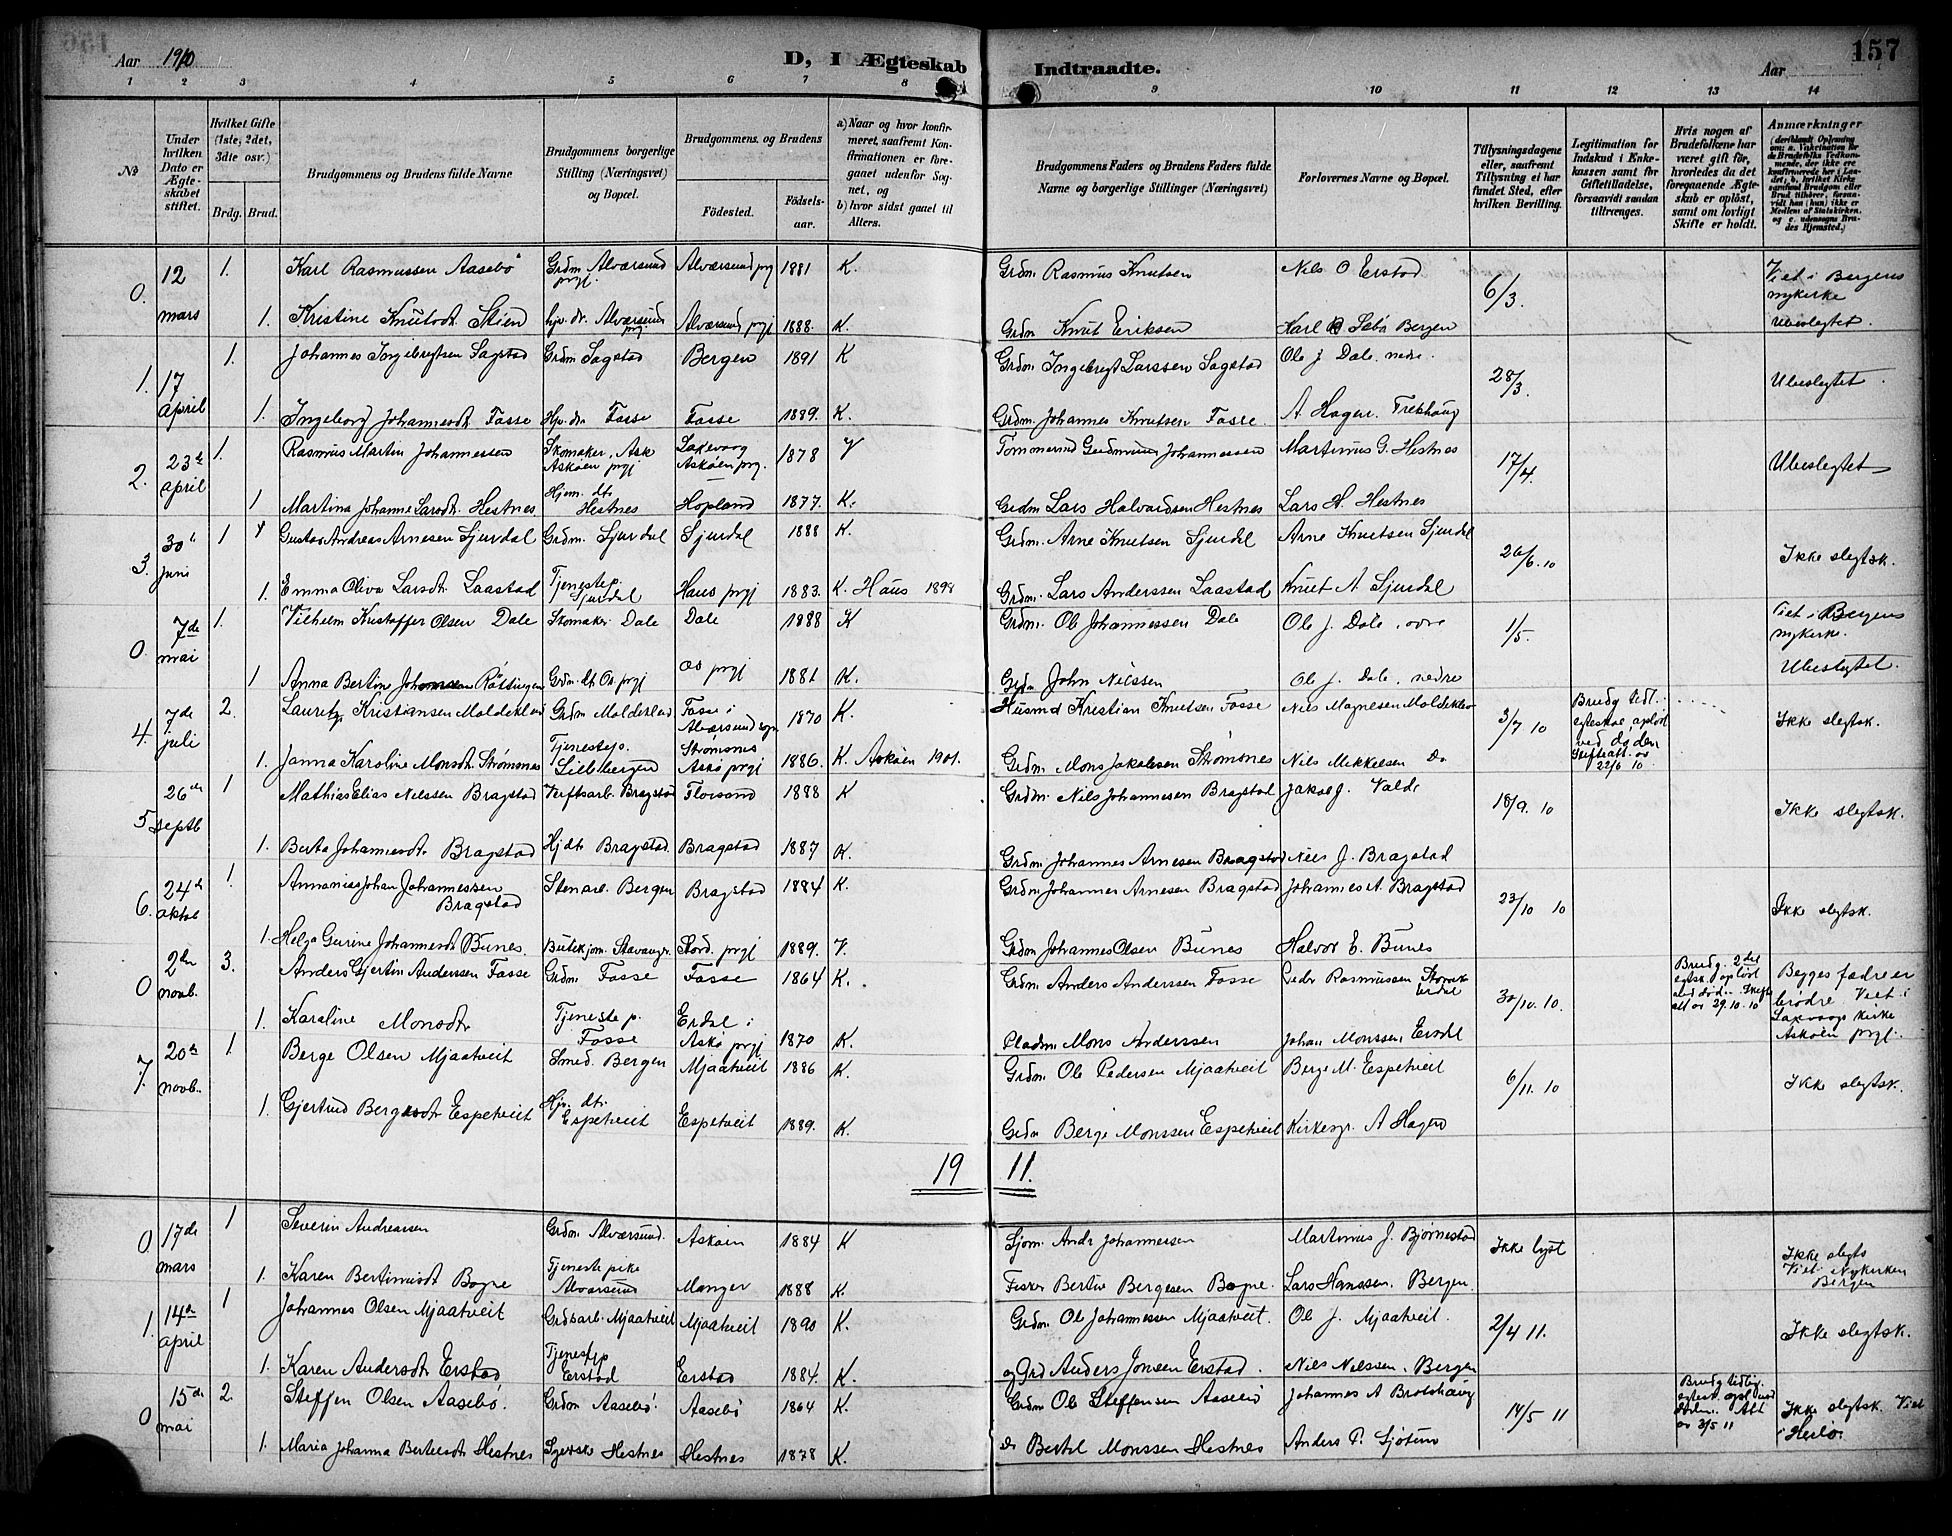 Aar 1910
D, I Ægteskab Indtraadte.
Aar
157
1 2 3 4 5 6 7 8 9 10 11 12 13 14
No
Under hvilken Dato er Ægteskabet stiftet.
Hvilket Gifte (1ste, 2det, 3die osv.)
Brdg. Brud.
Brudgommens og Brudens fulde Navne
Brudgommens borgerlige Stilling (Næringsvei) og Bopæl.
Brudgommens. og Brudens
Fødested.
Fødselsaar.
a) Naar og hvor konfirmeret, saafremt Konfirmationen er foregaaet udenfor Sognet, og
b) hvor sidst gaaet til Alters.
Brudgommens Faders og Brudens Faders fulde Navne og borgerlige Stillinger (Næringsvei)
Forlovernes Navne og Bopæl.
Tillysningsdagene eller, saafremt Tillysning ei har fundet Sted, efter hvilken Bevilling.
Legitimation for Indskud i Enkekassen samt for Giftetilladelse, forsaavidt saadan tiltrænges.
Hvis nogen af Brudefolkene har været gift før, hvorledes da det foregaaende Ægteskab er opløst, samt om lovligt Skifte er holdt.
Anmærkninger
0. 12 mars 1. Karl Rasmussen Aasebø Grdm Alværsund prgj. Alværsund prgj 1881 K. Grdm. Rasmus Knutsen Nils O Erstad 6/3. Viet i Bergens nykirke
1. Kristine Knutsdt. Stien hjv. dt. Alværsund prgj Alværsund prgj 1888. K. Grdm Knut Eriksen Karl R Sæbø Bergen Ubeslegtet.
1. 17 april 1. Johannes Ingebregtsen Sagstad Grdm Sagstad Bergen 1891 K Grdm. Ingebregt Larssen Sagstad Ole J. Dale. nedre. 28/3. Ubeslegtet.
1. Ingeborg Johannesdt Fosse Hjv. dtr Fosse Fosse 1889. K. Grdm. Johannes Knutsen Fosse. A Hagen. Frekhaug
2. 23de april 1. Rasmus Martin Johannessen Skomaker, Ask Askøen prgj Laxevaag Askøen prg. 1878 V Tommermd Gudmund Johannessen Martinus G. Hestnes 17/4. Ubeslegtet
1 Martina Johanne Larsdt. Hestnes Hjem. dtr Hestnes Hopland 1877. K. Grdm Lars Halvardsen Hestnes Lars H. Hestnes
3. 30te juni 1 Gustav Andreas Arnesen Sjurdal Grdm. Sjurdal Sjurdal 1888 K. Grdm. Arne Knutsen Sjurdal Arne Knutsen Sjurdal 26/6. 10 Ikke slegtsk.
1. Emma Oliva Larsdt. Laastad Tjenestep. Sjurdal Haus prgj 1883. K. Haus 1898 Grdm. Lars Anderssen Laastad Knut A Sjurdal
0. 7de mai 1. Vilhelm Kristoffer Olsen Dale Skomaker Dale Dale 1888 K Grdm. Ole Johannessen Dale Ole J. Dale, øvre 1/5. Viet i Bergens nykirke.
1 Anna Bertine Johnssen Røttingen Grdm. dt. Os prgj Os prgj 1881 K. Grdm John Nilssen Ole J. Dale, nedre Ubeslegtet.
4. 7de juli 2. Lauritz Kristiansen Moldeklev Grdm Moldeklev Fosse i Alværsund sogn 1870 K. Husmd Kristian Knutsen Fosse Nils Magnesen Moldeklev 3/7 10 Brudg tidl. egteskab opløst ved døden Skifteatt. av 22/6 10. Ikke slegtsk.
1. Janna Karoline Monsdt. Strømsnes Tjenestep. Strømsnes Askø prgj 1886. K. Askøen 1901. Grdm Mons Jakobsen Strømsnes Nils Mikkelsen Do
5 26de septb 1 Mathias Elias Nilssen Bragstad Verftsarb. Bragstad Florsund 1888 K Grdm. Nils Johannesen Bragstad Jakob J. Valde 18/9. 10 Ikke slegtsk.
1. Berta Johannesdt. Bragstad Hj dtr Bragstad Bragstad 1887 K. Grdm Johannes Arnesen Bragstad Nils J. Bragstad
6. 24de oktob 1. Annanias Johan Johannessen Bragstad Stenarb. Bergen Bragstad 1884 K. Grdm Johannes Arnesen Bragstad Johannes A. Bragstad 23/10 10 Ikke slegtsk.
1. Helga Gurine Johannesdt. Bunes. Butikjom. Stavanger Stord. prgj 1889. V. Grdm Johannes Olsen Bunes Halvor E. Bunes
0 2den novb. 3. Anders Gjertin Anderssen Fosse Grdm Fosse Fosse 1864 K. Grdm. Anders Anderssen Fosse Peder Rasmussen 30/10. 10. Brudg. 2det egtsk. opløst ved død. Skifteatt av 29.10.10 Begges fædre er brødre. Viet i Laxevaags kirke Askøen prgj.
1. Karoline Monsdt Tjenestep. Fosse Erdal i Askø prgj 1870 K. Pladsm Mons Anderssen Johan Monssen Erdal
7. 20de novb. 1. Berge Olsen Mjaatveit Smed. Bergen Mjaatveit 1886 K. Grdm. Ole Pedersen Mjaatveit Berge M. Espetveit 6/11. 10 Ikke slegtsk.
1. Gjertrud Bergesdt. Espetveit Hjv. dtr. Espetveit Espetveit 1889. K. Grdm Berge Monssen Espetveit Kirkesgr. A Hagen
19 11.
0. 17de mars 1 Severin Andreassen Grdm. Alværsund. Askøen 1884 K Sjøm. Andr Johannessen Martinus J. Bjørnestad Ikke lyst Ikke slegts Viet i Nykirken Bergen
1. Karen Bertinusdt Bogne Tjenestepike Alværsund Manger 1888 K. Fisker Bertin Bergesen Bogne. Lars Hanssen. Bergen.
1. 14de april 1 Johannes Olsen Mjaatveit Grdsarb. Mjaatveit Mjaatveit 1890 K. Grdm. Ole Johannessen Mjaatveit. Ole J. Mjaatveit. 2/4 11. Ikke slegtsk.
1. Karen Andersdt Erstad Tjenestep Erstad Erstad 1884. K. og Grd Anders Jonsen Erstad. Nils Nilssen. Bergen
0 15de mai 2. Steffen Olsen Aasebø. Grdm Aasebø Aasebø 1864 K. Grdm Ole Steffensen Aasebø Johannes A Brotshaug 14/5 11 Brudg tidlig. egtesk. opl. ved døden. Att av 3/5 11 Ikke slegtsk. Viet i Herlø.
1. Maria Johanna Bertelsdt Hestnes Syerske Hestnes Hestnes 1878 K. Do Bertel Monssen Hestnes Anders P. Sjøtun